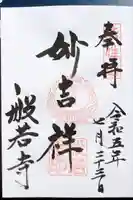 奉拝
令和五年
七月二十三日
妙吉祥
般若寺